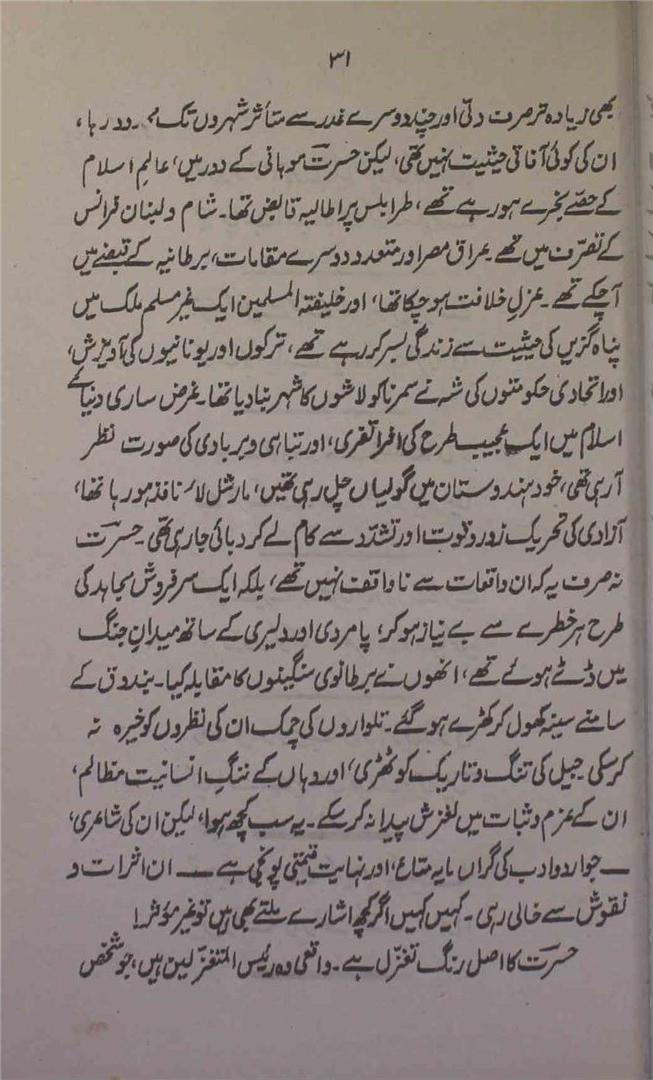 ۳۱
بھی زیادہ تر صرف دلّی اور چند دوسرے غدر سے متأثر شہروں تک محدود رہا،
ان کی کوئی آفاقی حیثیت نہیں تھی، لیکن حسرتؔ موہانی کے دور میں، عالمِ اسلام
کے حصّے بخرے ہو رہے تھے، طرابلس پر اطالیہ قابض تھا۔ شام و لبنان فرانس
کے تصرّف میں تھے۔ عراق مصر اور متعدد دوسرے مقامات، برطانیہ کے قبضے میں
آچکے تھے۔ عزلِ خلافت ہو چکا تھا، اور خلیفتہ المسلمین ایک غیر مسلم ملک میں
پناہ گزیں کی حیثیت سے زندگی بسر کر رہے تھے، ترکوں اور یونانیوں کی آویزش،
اور اتحادی حکومتوں کی شہ نے سمرنا کو لاشوں کا شہر بنا دیا تھا۔ غرض ساری دنیائے
اسلام میں ایک عجیب طرح کی افراتفری، اور تباہی و بربادی کی صورت نظر
آرہی تھی، خود ہندوستان میں گولیاں چل رہی تھیں، مارشل لاء نافذ ہو رہا تھا،
آزادی کی تحریک زور و قوت اور تشدّد سے کام لے کر دبائی جارہی تھی۔ حسرتؔ
نہ صرف یہ کہ ان واقعات سے ناواقف نہیں تھے، بلکہ ایک سرفروش مجاہد کی
طرح ہر خطرے سے بے نیاز ہو کر، پامردی اور دلیری کے ساتھ میدانِ جنگ
میں ڈٹے ہوئے تھے، انھوں نے برطانوی سنگینوں کا مقابلہ کیا۔ بندوق کے
سامنے سینہ کھول کر کھڑے ہو گئے۔ تلواروں کی چمک ان کی نظروں کو خیرہ نہ
کرسکی۔ جیل کی تنگ و تاریک کوٹھڑی، اور وہاں کے ننگِ انسانیت مظالم،
ان کے عزم و ثبات میں لغزش پیدا نہ کر سکے۔ یہ سب کچھ ہوا، لیکن ان کی شاعری،
— جو اردو ادب کی گراں مایہ متاع، اور نہایت قیمتی پونجی ہے — ان اثرات و
نقوش سے خالی رہی۔ کہیں کہیں اگر کچھ اشارے ملتے بھی ہیں تو غیر مؤثر!
حسرتؔ کا اصل رنگ تغزّل ہے۔ واقعی وہ رئیس المتغزّلین ہیں، جو شخص